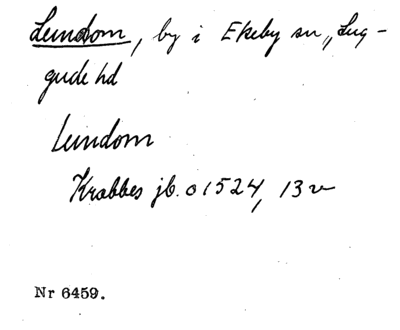 Lundom, by i Ekeby sn, Lug-
gude hd
Lundom
Krabbes jb. o 1524, 13 v
Nr 6459.